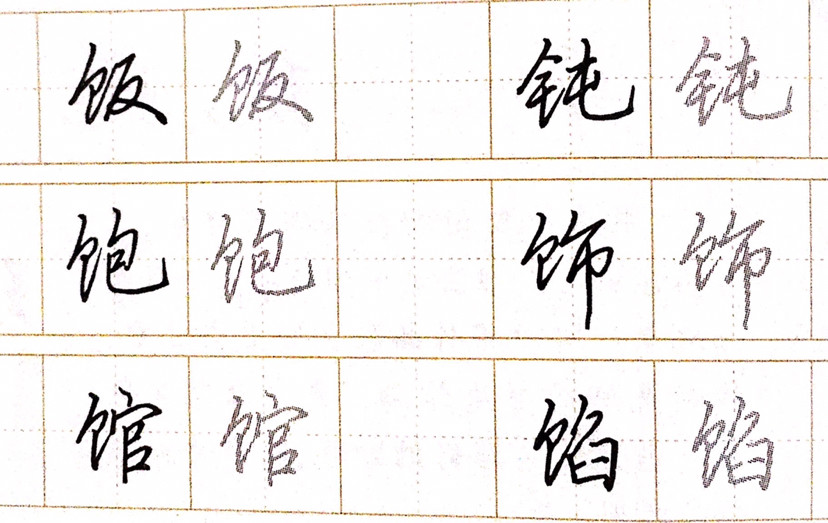 饭 饭 钝 钝
饱 饱 饰 饰
馆 馆 馅 馅